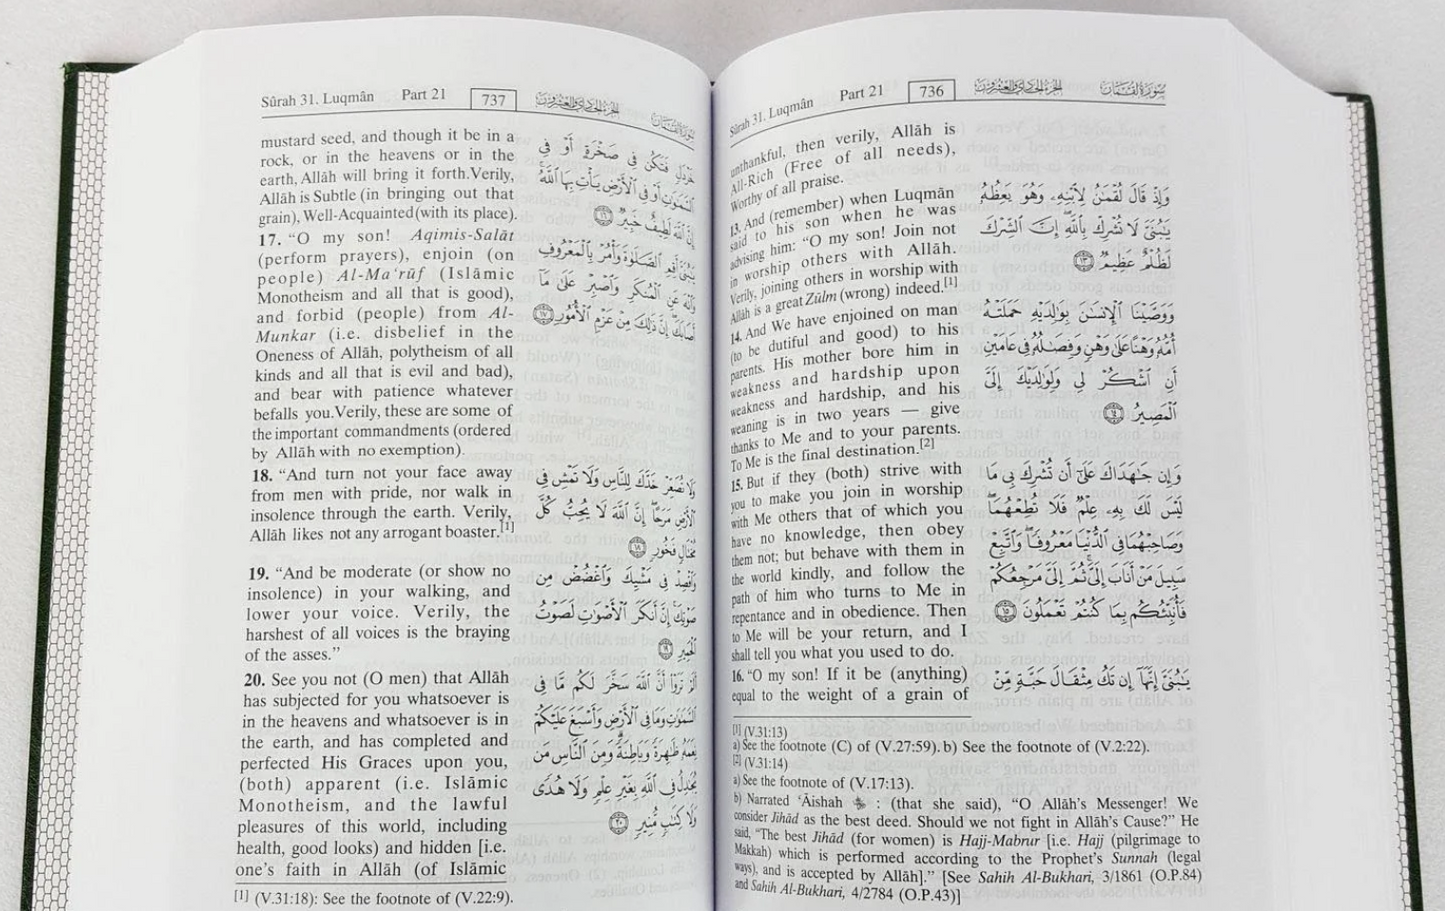 Sûrah 31. Luqmân Part 21 736 الجزء الحادي والعشرون سورة لقمان
unthankful, then verily, Allâh is
All-Rich (Free of all needs),
Worthy of all praise.
13. And (remember) when Luqmân
said to his son when he was
advising him: “O my son! Join not
in worship others with Allâh.
Verily, joining others in worship with
Allâh is a great Zûlm (wrong) indeed.[1]
14. And We have enjoined on man
(to be dutiful and good) to his
parents. His mother bore him in
weakness and hardship upon
weakness and hardship, and his
weaning is in two years — give
thanks to Me and to your parents.
To Me is the final destination.[2]
15. But if they (both) strive with
you to make you join in worship
with Me others that of which you
have no knowledge, then obey
them not; but behave with them in
the world kindly, and follow the
path of him who turns to Me in
repentance and in obedience. Then
to Me will be your return, and I
shall tell you what you used to do.
16. “O my son! If it be (anything)
equal to the weight of a grain of
وَإِذْ قَالَ لُقْمَٰنُ لِٱبْنِهِۦ وَهُوَ يَعِظُهُۥ
يَٰبُنَىَّ لَا تُشْرِكْ بِٱللَّهِ إِنَّ ٱلشِّرْكَ
لَظُلْمٌ عَظِيمٌ ١٣
وَوَصَّيْنَا ٱلْإِنسَٰنَ بِوَٰلِدَيْهِ حَمَلَتْهُ
أُمُّهُۥ وَهْنًا عَلَىٰ وَهْنٍ وَفِصَٰلُهُۥ فِى عَامَيْنِ
أَنِ ٱشْكُرْ لِى وَلِوَٰلِدَيْكَ إِلَىَّ
ٱلْمَصِيرُ ١٤
وَإِن جَٰهَدَاكَ عَلَىٰٓ أَن تُشْرِكَ بِى مَا
لَيْسَ لَكَ بِهِۦ عِلْمٌ فَلَا تُطِعْهُمَا
وَصَاحِبْهُمَا فِى ٱلدُّنْيَا مَعْرُوفًا وَٱتَّبِعْ
سَبِيلَ مَنْ أَنَابَ إِلَىَّ ثُمَّ إِلَىَّ مَرْجِعُكُمْ
فَأُنَبِّئُكُم بِمَا كُنتُمْ تَعْمَلُونَ ١٥
يَٰبُنَىَّ إِنَّهَآ إِن تَكُ مِثْقَالَ حَبَّةٍ مِّنْ
[1] (V.31:13)
a) See the footnote (C) of (V.27:59). b) See the footnote of (V.2:22).
[2] (V.31:14)
a) See the footnote of (V.17:13).
b) Narrated ‘Âishah : (that she said), “O Allâh’s Messenger! We
consider Jihâd as the best deed. Should we not fight in Allâh’s Cause?” He
said, “The best Jihâd (for women) is Hajj-Mabrur [i.e. Hajj (pilgrimage to
Makkah) which is performed according to the Prophet’s Sunnah (legal
ways), and is accepted by Allâh].” [See Sahih Al-Bukhari, 3/1861 (O.P.84)
and Sahih Al-Bukhari, 4/2784 (O.P.43)]
Sûrah 31. Luqmân Part 21 737 الجزء الحادي والعشرون سورة لقمان
mustard seed, and though it be in a
rock, or in the heavens or in the
earth, Allâh will bring it forth.Verily,
Allâh is Subtle (in bringing out that
grain), Well-Acquainted (with its place).
17. “O my son! Aqimis-Salât
(perform prayers), enjoin (on
people) Al-Ma‘rûf (Islâmic
Monotheism and all that is good),
and forbid (people) from Al-
Munkar (i.e. disbelief in the
Oneness of Allâh, polytheism of all
kinds and all that is evil and bad),
and bear with patience whatever
befalls you.Verily, these are some of
the important commandments (ordered
by Allâh with no exemption).
18. “And turn not your face away
from men with pride, nor walk in
insolence through the earth. Verily,
Allâh likes not any arrogant boaster.[1]
19. “And be moderate (or show no
insolence) in your walking, and
lower your voice. Verily, the
harshest of all voices is the braying
of the asses.”
20. See you not (O men) that Allâh
has subjected for you whatsoever is
in the heavens and whatsoever is in
the earth, and has completed and
perfected His Graces upon you,
(both) apparent (i.e. Islâmic
Monotheism, and the lawful
pleasures of this world, including
health, good looks) and hidden [i.e.
one’s faith in Allâh (of Islâmic
خَرْدَلٍ فَتَكُن فِى صَخْرَةٍ أَوْ فِى
ٱلسَّمَٰوَٰتِ أَوْ فِى ٱلْأَرْضِ يَأْتِ بِهَا ٱللَّهُ
إِنَّ ٱللَّهَ لَطِيفٌ خَبِيرٌ ١٦
يَٰبُنَىَّ أَقِمِ ٱلصَّلَوٰةَ وَأْمُرْ بِٱلْمَعْرُوفِ
وَٱنْهَ عَنِ ٱلْمُنكَرِ وَٱصْبِرْ عَلَىٰ مَآ
أَصَابَكَ إِنَّ ذَٰلِكَ مِنْ عَزْمِ ٱلْأُمُورِ ١٧
وَلَا تُصَعِّرْ خَدَّكَ لِلنَّاسِ وَلَا تَمْشِ فِى
ٱلْأَرْضِ مَرَحًا إِنَّ ٱللَّهَ لَا يُحِبُّ كُلَّ
مُخْتَالٍ فَخُورٍ ١٨
وَٱقْصِدْ فِى مَشْيِكَ وَٱغْضُضْ مِن
صَوْتِكَ إِنَّ أَنكَرَ ٱلْأَصْوَٰتِ لَصَوْتُ
ٱلْحَمِيرِ ١٩
أَلَمْ تَرَوْا۟ أَنَّ ٱللَّهَ سَخَّرَ لَكُم مَّا فِى
ٱلسَّمَٰوَٰتِ وَمَا فِى ٱلْأَرْضِ وَأَسْبَغَ عَلَيْكُمْ
نِعَمَهُۥ ظَٰهِرَةً وَبَاطِنَةً وَمِنَ ٱلنَّاسِ مَن
يُجَٰدِلُ فِى ٱللَّهِ بِغَيْرِ عِلْمٍ وَلَا هُدًى
وَلَا كِتَٰبٍ مُّنِيرٍ ٢٠
[1] (V.31:18): See the footnote of (V.22:9).